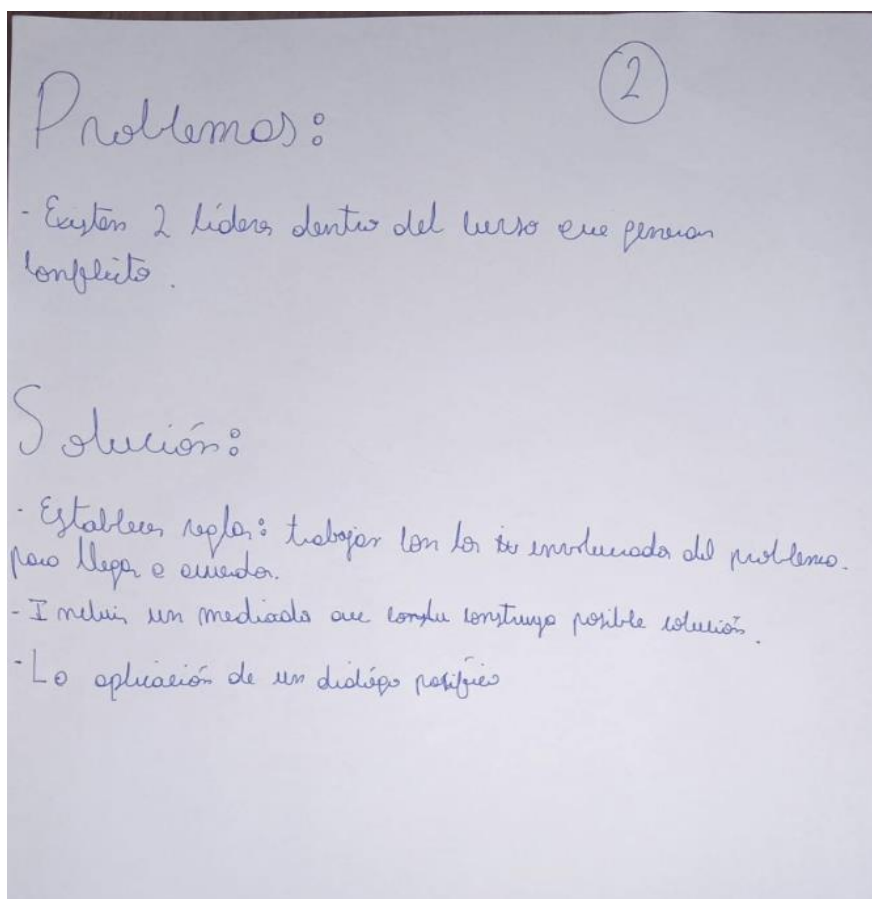 2
Problemas:
- Existen 2 líderes dentro del curso que generan
conflicto.
Solución:
- Establecer reglas: trabajar con los involucrados del problema.
para llegar a acuerdos.
- Incluir un mediador que construya posible solución.
- La aplicación de un diálogo pacífico